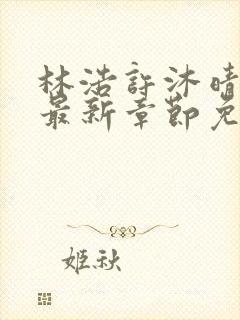 林浩許沐晴
最新章節免
姬秋